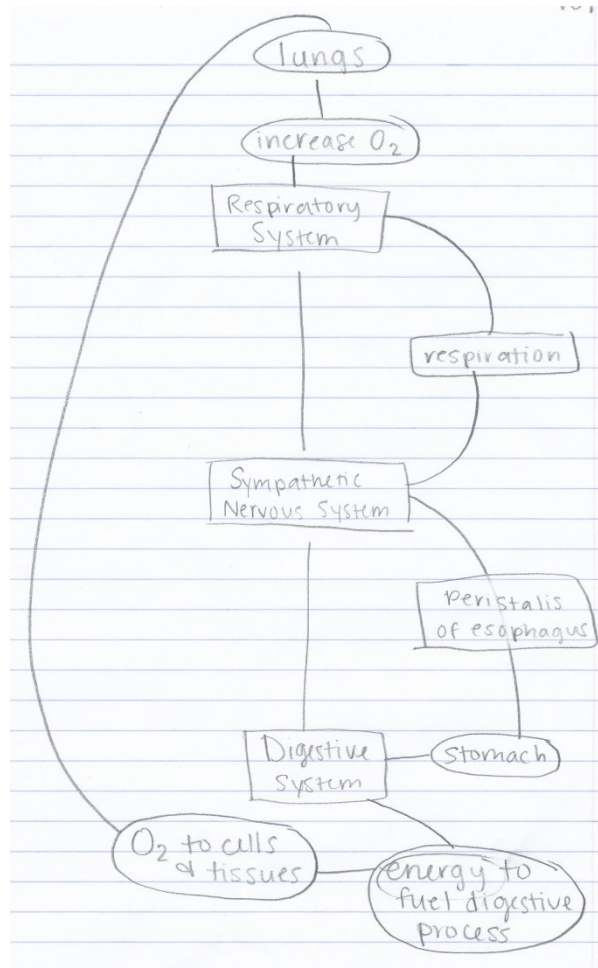 lungs
increase O₂
Respiratory
System
respiration
Sympathetic
Nervous System
peristalis
of esophagus
Digestive
System
stomach
O₂ to cells
& tissues
energy to
fuel digestive
process